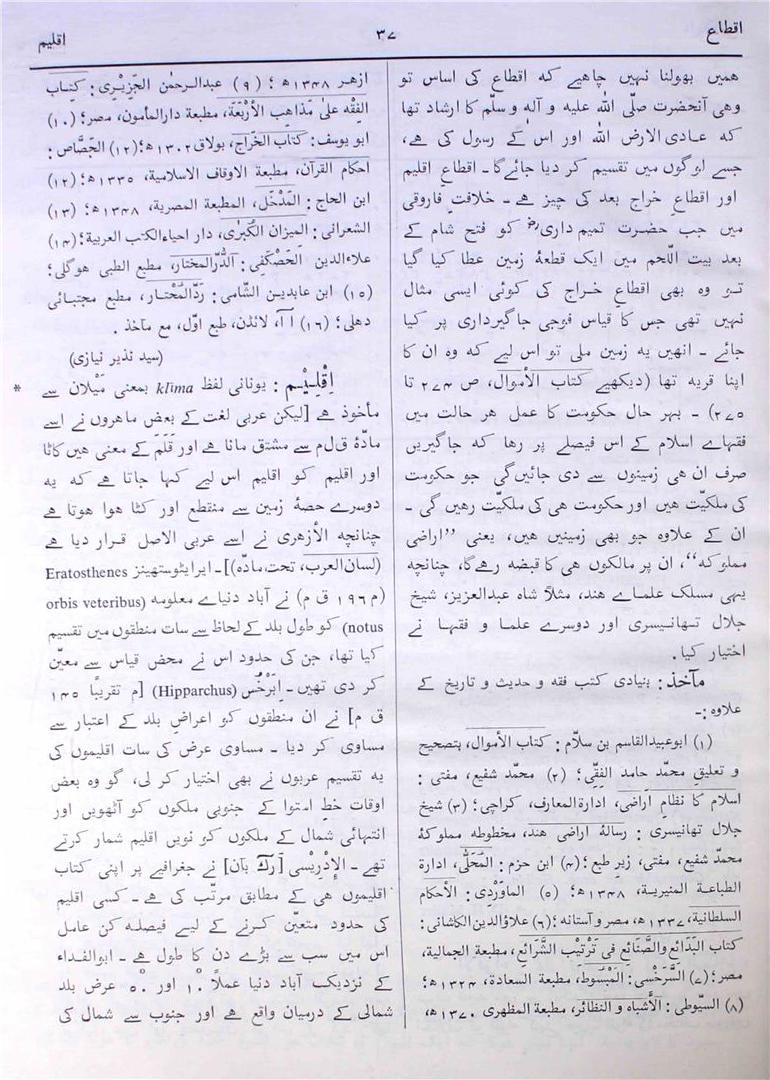 اقطاع
۳۷
اقلیم
ہمیں بھولنا نہیں چاہیے کہ اقطاع کی اساس تو
وہی آنحضرت صلّی اللہ علیہ و آلہ و سلّم کا ارشاد تھا
کہ عادی الارض اللہ اور اس کے رسول کی ہے،
جسے لوگوں میں تقسیم کر دیا جائےگا۔ اقطاعِ اقلیم
اور اقطاعِ خراج بعد کی چیز ہے۔ خلافتِ فاروقی
میں جب حضرت تمیم داریؓ کو فتح شام کے
بعد بیت اللّحم میں ایک قطعۂ زمین عطا کیا گیا
تو وہ بھی اقطاعِ خراج کی کوئی ایسی مثال
نہیں تھی جس کا قیاس فوجی جاگیرداری پر کیا
جائے۔ انھیں یہ زمین ملی تو اس لیے کہ وہ ان کا
اپنا قریہ تھا (دیکھیے کتاب الأموال، ص ۲۷۴ تا
۲۷۵)۔ بہر حال حکومت کا عمل ہر حالت میں
فقہاے اسلام کے اس فیصلے پر رہا کہ جاگیریں
صرف ان ہی زمینوں سے دی جائیں گی جو حکومت
کی ملکیّت ہیں اور حکومت ہی کی ملکیّت رہیں گی۔
ان کے علاوہ جو بھی زمینیں ہیں، یعنی ’’اراضی
مملوکہ‘‘، ان پر مالکوں ہی کا قبضہ رہےگا، چنانچہ
یہی مسلک علماے ہند، مثلاً شاہ عبدالعزیز، شیخ
جلال تھانیسری اور دوسرے علما و فقہا نے
اختیار کیا.
مآخذ: بنیادی کتب فقہ و حدیث و تاریخ کے
علاوہ :۔
(۱) ابوعبیدالقاسم بن سلاّم: کتاب الأموال، بتصحیح
و تعلیقِ محمّد حامد الفِقِّی؛ (۲) محمّد شفیع، مفتی:
اسلام کا نظامِ اراضی، ادارۃ المعارف، کراچی؛ (۳) شیخ
جلال تھانیسری: رسالۂ اراضی ہند، مخطوطہ مملوکۂ
محمّد شفیع، مفتی، زیر طبع؛ (۴) ابن حزم: المَحَلّٰی، ادارۃ
الطباعۃ المنیریۃ، ۱۳۴۸ھ؛ (۵) الماوَرْدِی: الأحکام
السلطانیۃ، ۱۳۳۷ھ، مصر و آستانہ؛ (۶) علاؤالدین الکاشانی:
کتاب البَدائع والصَّنائع فی تَرْتیْب الشَّرائع، مطبعۃ الجمالیۃ،
مصر؛ (۷) السَّرَخْسی: المَبْسُوط، مطبعۃ السعادۃ، ۱۳۲۴ھ؛
(۸) السیّوطی: الأشباہ و النظائر، مطبعۃ المظهری ۱۳۷۰ھ،
ازھر ۱۳۴۸ھ؛ (۹) عبدالرحمٰن الجَزِیْری: کتاب
الفقہ علیٰ مَذاهِب الأرْبَعَۃ، مطبعۃ دارالمأمون، مصر؛ (۱۰)
ابو یوسف: کتاب الخَراج، بولاق ۱۳۰۲ھ؛ (۱۲) الجَصّاص:
احکام القرآن، مطبعۃ الاوقاف الاسلامیۃ، ۱۳۳۵ھ؛ (۱۲)
ابن الحاج: المَدْخَل، المطبعۃ المصریۃ، ۱۳۴۸ھ؛ (۱۳)
الشعرانی: المیزان الکُبْرٰی، دار احیاءالکتب العربیۃ؛ (۱۴)
علاءالدین الحَصْکَفی: الدُّرالمختار، مطبع الطبی ھوگلی؛
(۱۵) ابن عابدین الشّامی: رَدُّالمُحْتار، مطبع مجتبائی
دھلی؛ (۱۶) آآ، لائڈن، طبع اوّل، مع مآخذ.
(سید نذیر نیازی)
* اِقْلِیْم: یونانی لفظ klima بمعنی مَیْلان سے
مأخوذ ہے [لیکن عربی لغت کے بعض ماہروں نے اسے
مادّۂ ق ل م سے مشتق مانا ہے اور قَلَمَ کے معنی ہیں کاٹا
اور اقلیم کو اقلیم اس لیے کہا جاتا ہے کہ یہ
دوسرے حصۂ زمین سے منقطع اور کٹا ہوا ہوتا ہے
چنانچہ الأزہری نے اسے عربی الاصل قرار دیا ہے
(لسان العرب، تحت مادّہ)]۔ ایراٹوستھینز Eratosthenes
(م ۱۹۶ ق م) نے آباد دنیاے معلومہ (orbis veteribus
notus) کو طول بلد کے لحاظ سے سات منطقوں میں تقسیم
کیا تھا، جن کی حدود اس نے محض قیاس سے معیّن
کر دی تھیں۔ اِبَرْخُس (Hipparchus) [م تقریبًا ۱۴۵
ق م] نے ان منطقوں کو اعراضِ بلد کے اعتبار سے
مساوی کر دیا۔ مساوی عرض کی سات اقلیموں کی
یہ تقسیم عربوں نے بھی اختیار کر لی، گو وہ بعض
اوقات خطِ استوا کے جنوبی ملکوں کو آٹھویں اور
انتہائی شمال کے ملکوں کو نویں اقلیم شمار کرتے
تھے۔ الإدْریْسی [رَكّ بآن] نے جغرافیے پر اپنی کتاب
اقلیموں ہی کے مطابق مرتّب کی ہے۔ کسی اقلیم
کی حدود متعیّن کرنے کے لیے فیصلہ کن عامل
اس میں سب سے بڑے دن کا طول ہے۔ ابوالفداء
کے نزدیک آباد دنیا عملاً ۱۰° اور ۵۰° عرض بلد
شمالی کے درمیان واقع ہے اور جنوب سے شمال کی